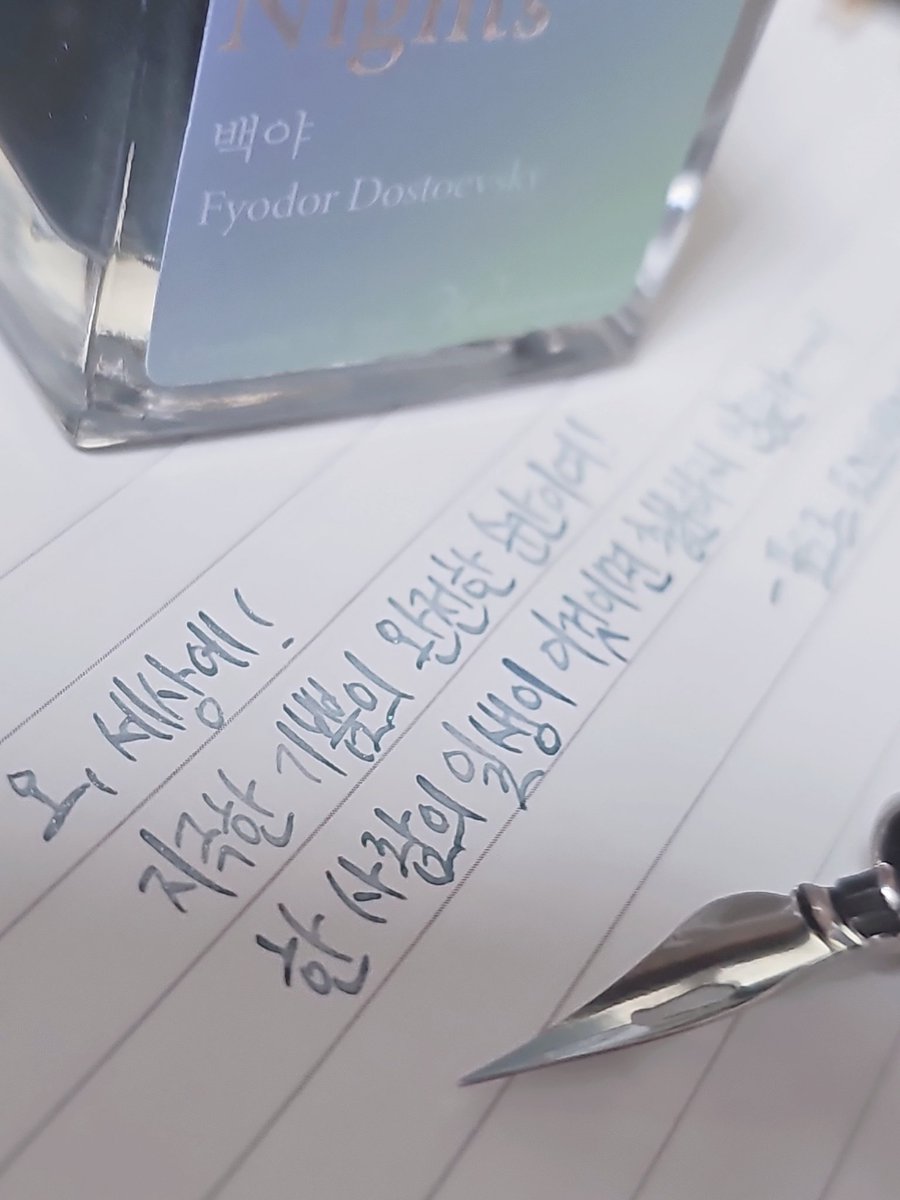 Nights
백야
Fyodor Dostoevsky
오, 세상에!
지극한 기쁨의 완전한 순간이여!
한 사람의 일생이 이것이면 충분하지 않은가